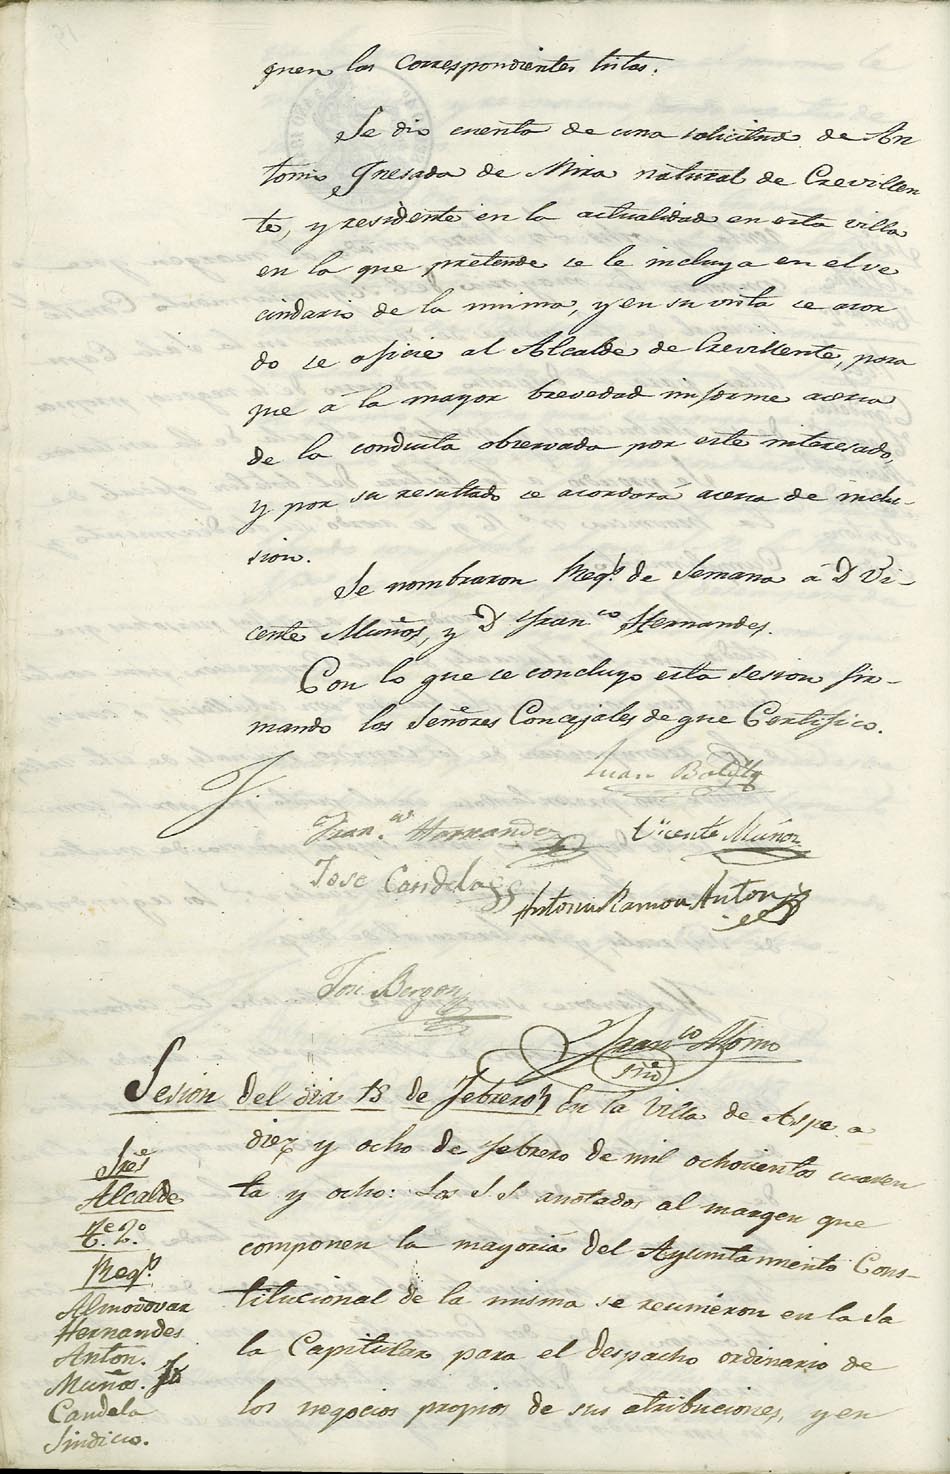 quen las correspondientes listas.
Se dio cuenta de una solicitud de An
tonio Quesada de Mira natural de Crevillen
te, y residente en la actualidad en esta villa
en la que pretende se le incluya en el ve
cindario de la misma, y en su vista se acor
do se oficie al Alcalde de Crevillente, para
que á la mayor brevedad informe acerca
de la conducta observada por este interesado,
y por su resultado se acordará acerca de inclu-
sion.
Se nombraron Regs. de Semana á D Vi-
cente Muños, y D Franco Hernandes.
Con lo que se concluyo esta sesion fir-
mando los Señores Concejales de que Certifico.
Juan Botella
Fran.co Hernandez
Vicente Muñoz
José Candela
Antonio Ramon Anton
José Berzon
Franco
Srio
Sesion del dia 18 de Febrero En la Villa de Aspe a
diez y ocho de febrero de mil ochocientos cuaren
ta y ocho: Los S.S. anotados al margen que
componen la mayoria del Ayuntamiento Cons-
titucional de la misma se reunieron en la Sa
la Capitular para el despacho ordinario de
los negocios propios de sus atribuciones, y en
Sres
Alcalde
Te. 2.o
Regs.
Almodovar
Hernandes
Anton.
Muños.
Candela
Sindico.